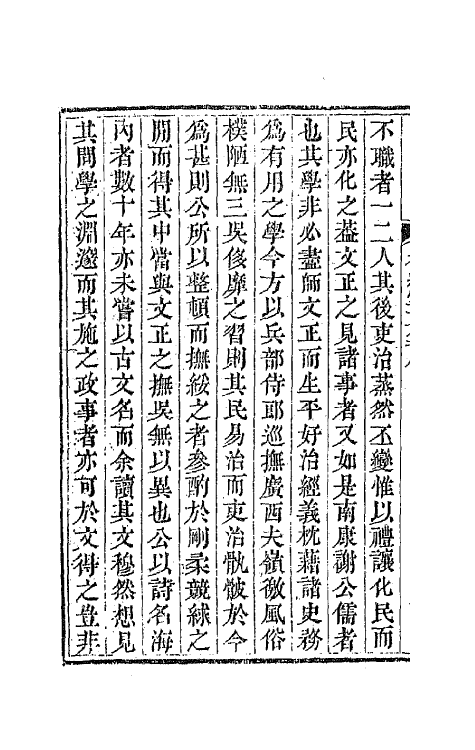 不職者一二人其後吏治蒸然丕變惟以禮讓化民而
民亦化之葢文正之見諸事者又如是南康謝公儒者
也其學非必盡師文正而生平好治經義枕藉諸史務
爲有用之學今方以兵部侍郎巡撫廣西夫嶺徼風俗
樸陋無三吳侈靡之習則其民易治而吏治骫骳於今
爲甚則公所以整頓而撫綏之者參酌於剛柔競絿之
閒而得其中當與文正之撫吳無以異也公以詩名海
內者數十年亦未嘗以古文名而余讀其文穆然想見
其問學之淵邃而其施之政事者亦可於文得之豈非